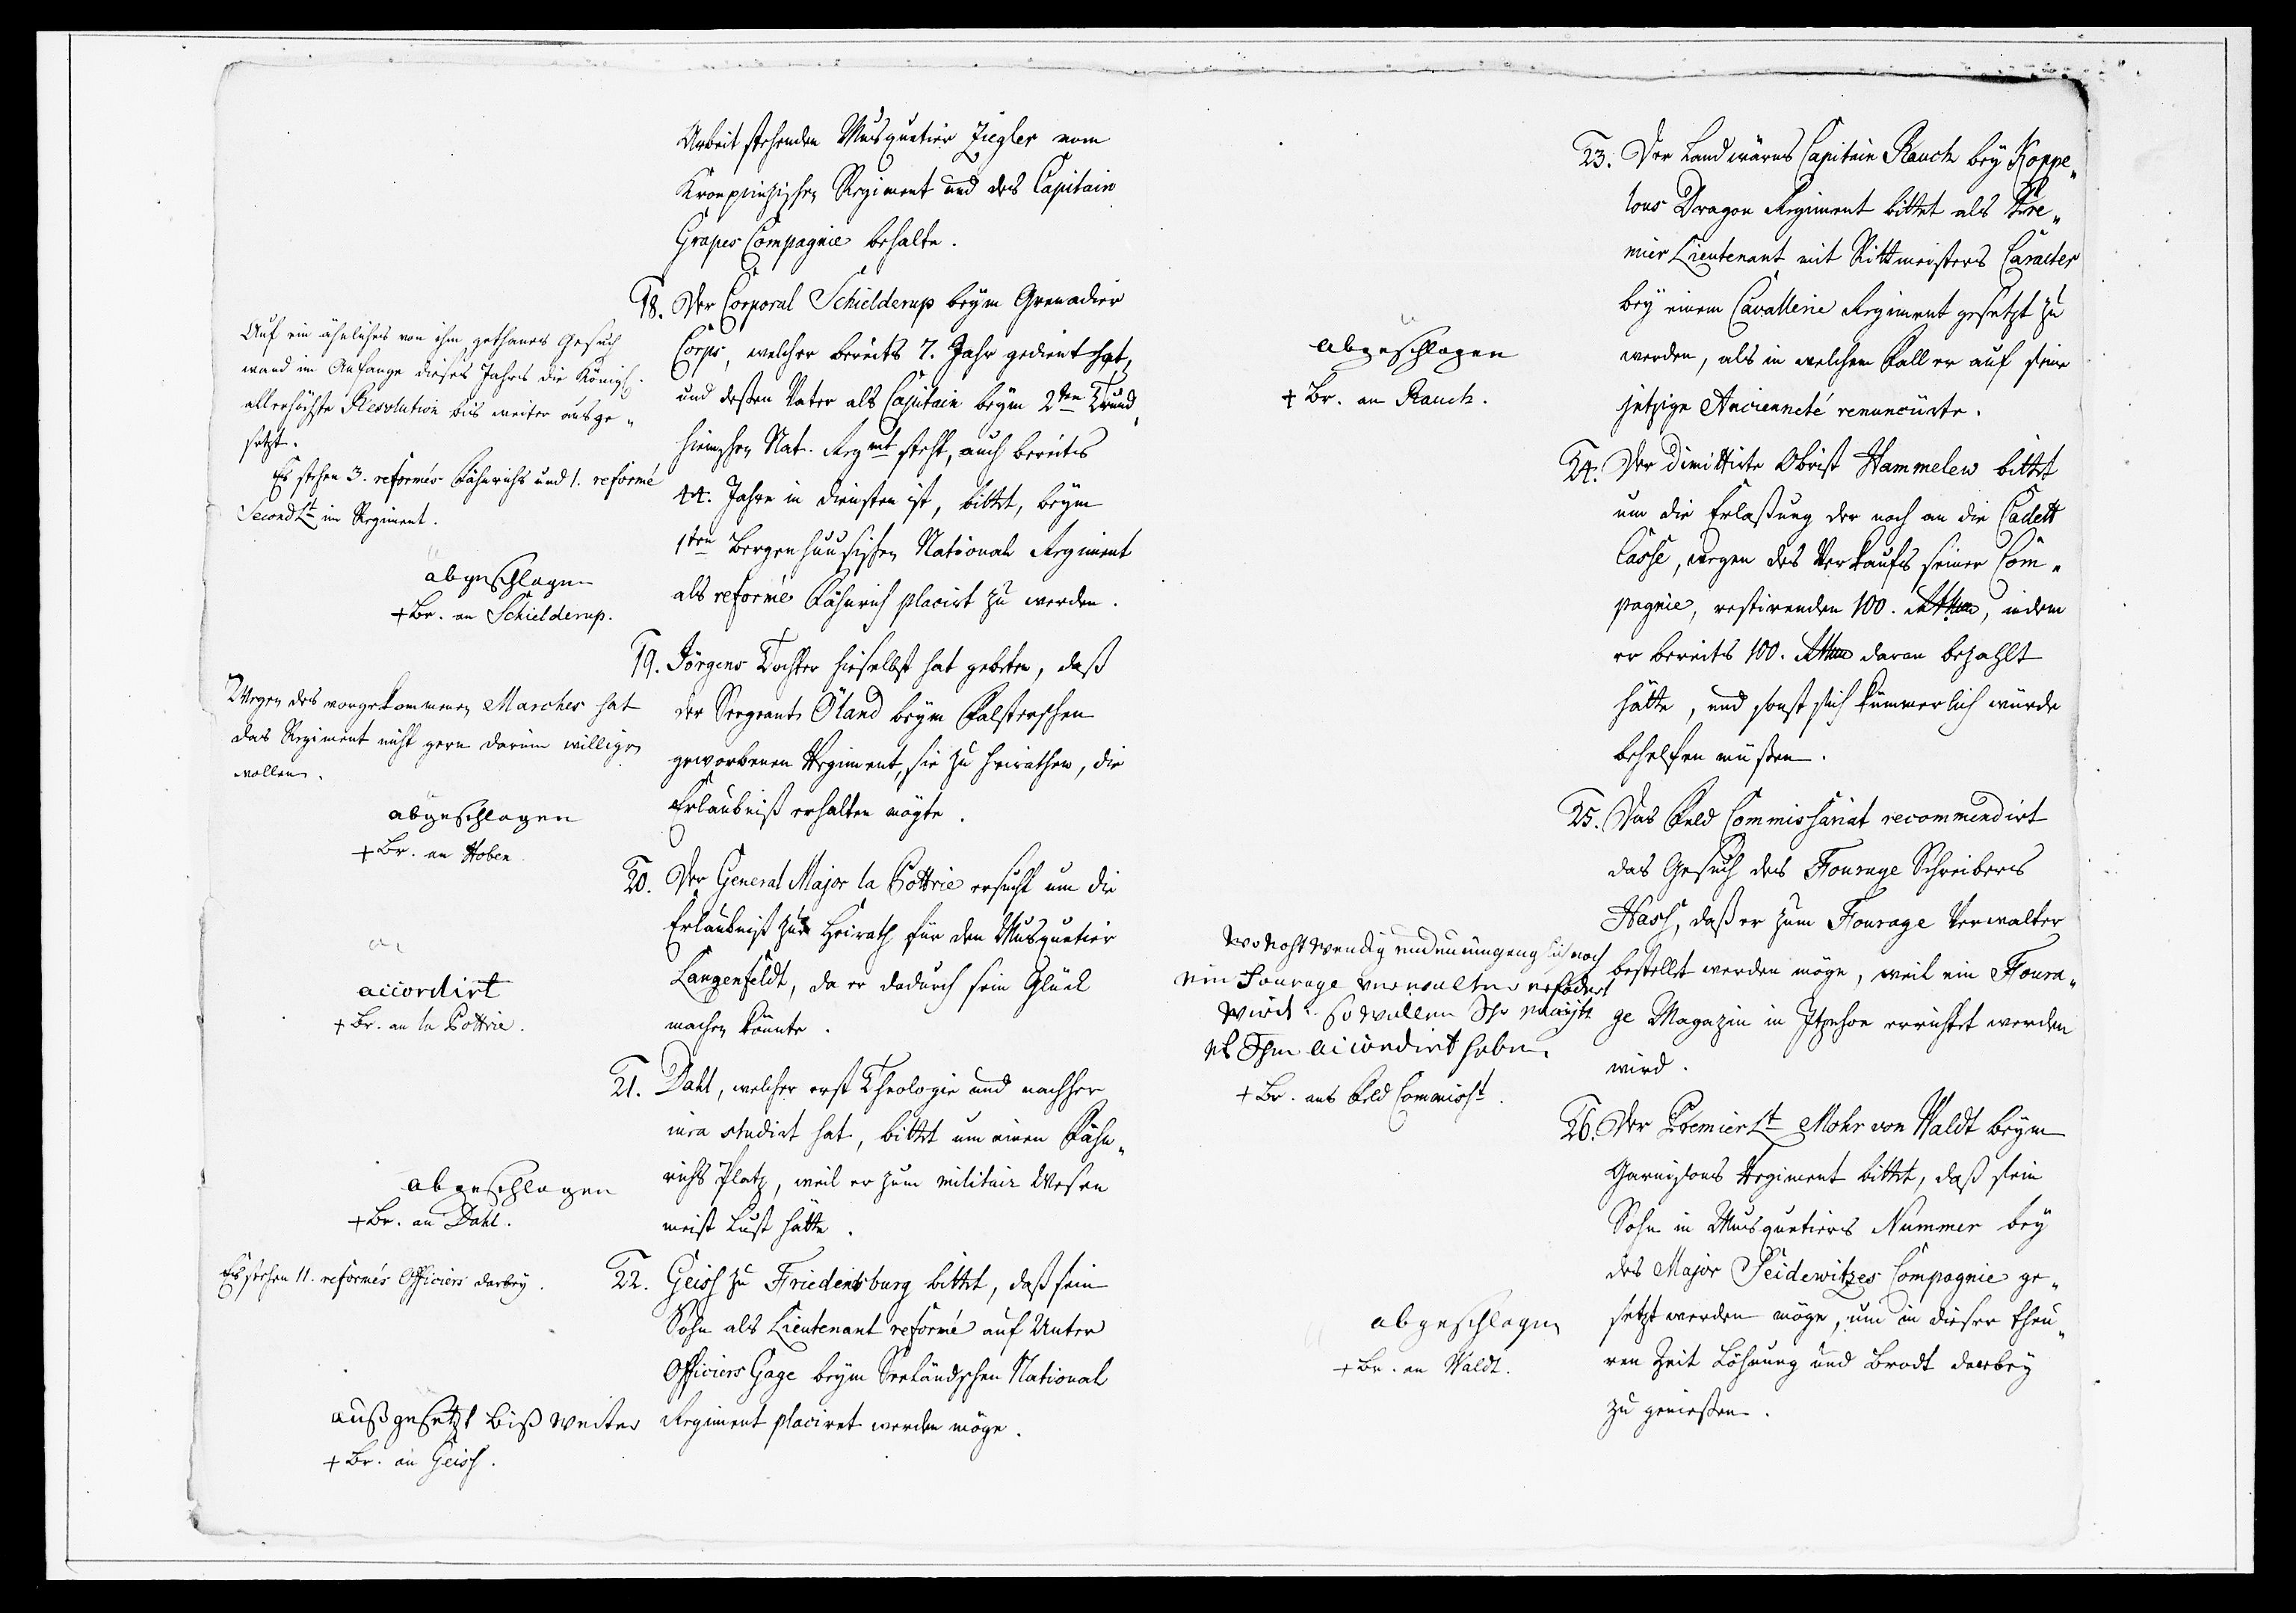 Arbeit stehenden Musquetier Ziegler vom
Kronprinzischen Regiment und des Capitain
Grapes Compagnie behalte.
18. Der Corporal Schielderup beym Grenadier
Corps, welcher bereits 7. Jahr gedient hat,
und deßen Vater als Capitain beym 2ten Trund„
hiemschen Nat. Regmt steht, auch bereits
44. Jahre in diensten ist, bittet, beym
1ten Bergenhuusischen National Regiment
als reformé Fähnrich placirt zu werden.
Auf ein ähnliches von ihm gethanes Gesuch
ward im Anfange dieses Jahres die Königl.
allerhöchste Resolution bis weiter ausge„
setzt.
Es stehen 3. reformés Fähnrichs und 1. reformé
Second Lt im Regiment.
abgeschlagen
+ Br. an Schielderup.
19. Jörgens Tochter hieselbst hat gebeten, daß
der Sergeant Öland beym Falsterschen
geworbenen Regiment, sie zu heirathen, die
Erlaubniß erhalten mögte.
Wegen des vorgekommenen Marches hat
das Regiment nicht gern darin willigen
wollen.
abgeschlagen
+ Br. an Hoben.
20. Der General Major la Pottrie ersucht um die
Erlaubniß zur Heirath für den Musquetier
Langenfeldt, da er dadurch sein Glück
machen könnte.
accordirt
+ Br. an la Pottrie.
21. Dahl, welcher erst Theologie und nachher
iura studirt hat, bittet um einen Fähn„
richs Platz, weil er zum militair Wesen
meist Lust hätte.
abgeschlagen
+ Br. an Dahl.
22. Geiss zu Friedensburg bittet, daß sein
Sohn als Lieutenant reformé auf Unter
Officiers Gage beym Seeländschen National
Regiment placiret werden möge.
Es stehen 11. reformés Officiers darbey.
außgesetzt biß weiter
+ Br. an Geiss.
23. Der Landwärns Capitain Rauch bey Koppe„
lous Dragon Regiment bittet als Pre„
mier Lieutenant mit Rittmeisters Caracter
bey einem Cavallerie Regiment gesetzt zu
werden, als in welchem Fall er auf seine
jetzige Ancienneté renuncirte.
abgeschlagen
+ Br. an Rauch.
24. Der dimittirte Obrist Hammelew bittet
um die Erlaßung der noch an die Cadett
Casse, wegen des Verkaufs seiner Com„
pagnie, restirenden 100. Rthlr, indem
er bereits 100. Rthlr daran bezahlt
hätte, und sonst sich kümmerlich würde
behelfen müßen.
25. Das Feld Commissariat recommendirt
das Gesuch des Fourage Schreibers
Hass, daß er zum Fourage Verwalter
bestellt werden möge, weil ein Foura„
ge Magazin in Itzehoe errichtet werden
wird.
wo nohtwendig und unümgenglich noch
ein Fourage verwalter erfodert
wird. so wollen Ihr Mayst.
es Ihm accordirt haben
+ Br. ans Feld Commisst.
26. Der Premier Lt Mohr von Waldt beym
Garnisons Regiment bittet, daß sein
Sohn in Musquetiers Nummer bey
des Major Seidewitzes Compagnie ge„
setzt werden möge, um in dieser theu„
ren Zeit Löhnung und Brodt darbey
zu genießen.
abgeschlagen
+ Br. an Waldt.